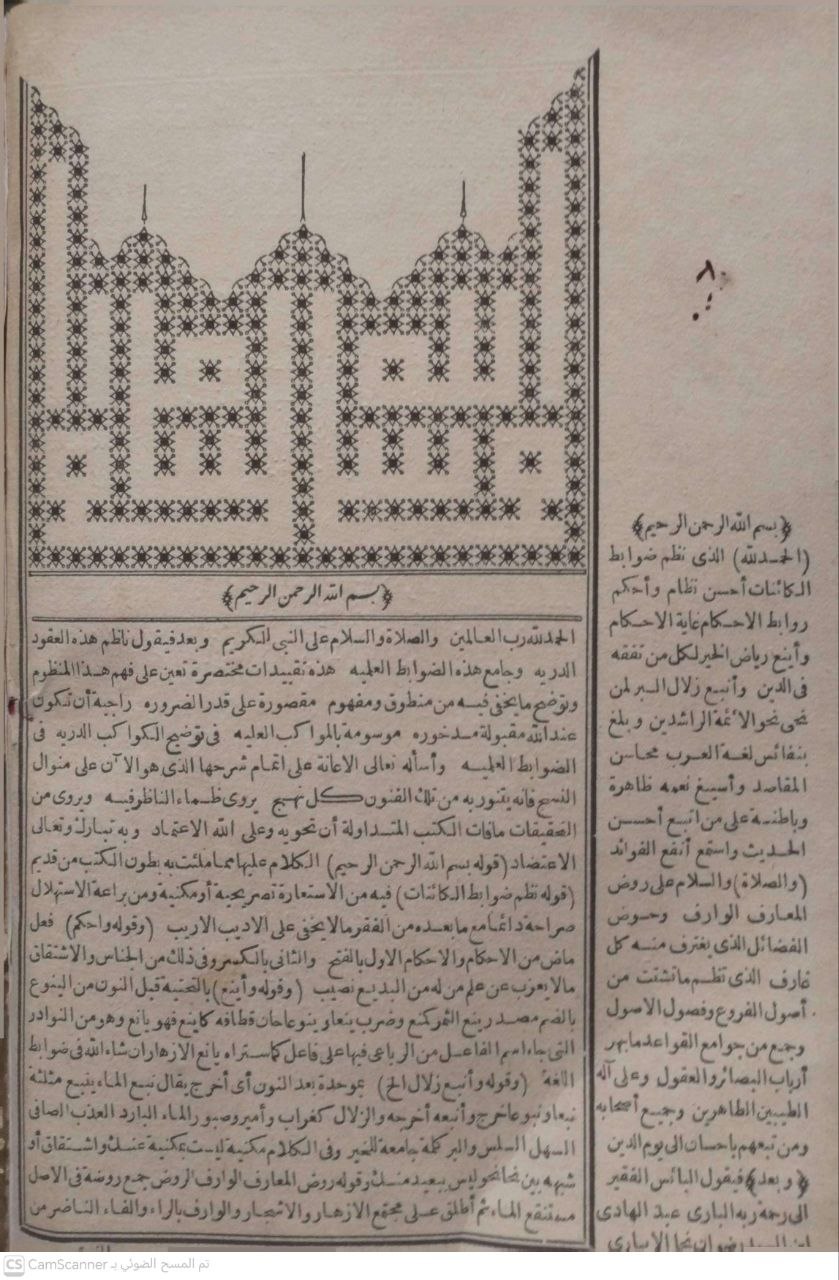 ﴿بسم الله الرحمن الرحيم﴾
الحمد لله رب العالمين والصلاة والسلام على النبى الكريم وبعد فيقول ناظم هذه العقود
الدريه وجامع هذه الضوابط العليه هذه تقييدات مختصرة تعين على فهم هذا المنظوم
وتوضح ما يخفى فيه من منطوق ومفهوم مقصورة على قدر الضروره راجية أن تكون
عند الله مقبولة مدخوره موسومة بالمواكب العليه فى توضيح الكواكب الدريه فى
الضوابط العليه وأسأله تعالى الاعانة على اتمام شرحها الذى هو الآن على منوال
النسج فانه يتنور به من تلك الفنون كل نهج يروى ظماء الناظر فيه ويروى من
التحقيقات ما فات الكتب المتداولة أن تحويه وعلى الله الاعتماد وبه تبارك وتعالى
الاعتضاد (قوله بسم الله الرحمن الرحيم) الكلام عليها مما ملئت به بطون الكتب من قديم
(قوله نظم ضوابط الكائنات) فيه من الاستعارة تصريحية أو مكنية ومن براعة الاستهلال
صراحة دائما مع ما بعده من الفقر ما لا يخفى على الاديب الاريب (وقوله واحكم) فعل
ماض من الاحكام والاحكام الاول بالفتح والثانى بالكسر وفى ذلك من الجناس والاشتقاق
ما لا يعزب عن علم من له من البديع نصيب (وقوله وأينع) بالتحتية قبل النون من الينوع
بالضم مصدر ينع الثمر كمنع وضرب ينعا وينوعا حان قطافه كاينع فهو يانع وهو من النوادر
التى جاء اسم الفاعل من الرباعى فيها على فاعل كما ستراه يانع الازهار ان شاء الله فى ضوابط
اللغة (وقوله وأنبع زلال الخ) بموحدة بعد النون أى أخرج يقال نبع الماء ينبع مثلثة
نبعا ونبوعا خرج وأنبعه أخرجه والزلال كغراب وأمير وصبور الماء البارد العذب الصافى
السهل السلس والبر كلمة جامعة للخير وفى الكلام مكنية ليست بمكنية عنك واشتقاق أو
شبهه بين نحا نحو ليس ببعيد منك وقوله روض المعارف الوارف الروض جمع روضة فى الاصل
مستنقع الماء ثم أطلق على مجتمع الازهار والاشجار والوارف بالراء والفاء الناضر من
﴿بسم الله الرحمن الرحيم﴾
(الحمد لله) الذى نظم ضوابط
الكائنات أحسن نظام وأحكم
روابط الاحكام غاية الاحكام
وأينع رياض الخير لكل من تفقه
فى الدين وأنبع زلال البر لمن
نحى نحو الأئمة الراشدين وبلغ
بنفائس لغة العرب محاسن
المقاصد وأسبغ نعمه ظاهرة
وباطنة على من اتبع أحسن
الحديث واستمع أنفع الفوائد
(والصلاة) والسلام على روض
المعارف الوارف وحوض
الفضائل الذى يغترف منه كل
غارف الذى نظم ما تشتت من
أصول الفروع وفصول الاصول
وجمع من جوامع القواعد ما بهر
أرباب البصائر والعقول وعلى آله
الطيبين الطاهرين وجميع أصحابه
ومن تبعهم باحسان الى يوم الدين
﴿وبعد﴾ فيقول البائس الفقير
الى رحمة ربه البارى عبد الهادى
ابن السيد رضوان نجا الابيارى
CamScanner تم المسح الضوئي بـ